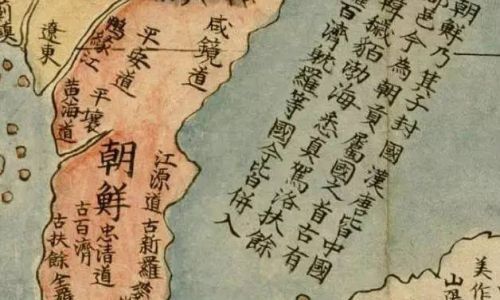 朝鮮乃其子封國漢唐皆中國
郡邑今為朝貢屬國之首古有
韓獩貊渤海悉真駕洛扶餘
百濟耽羅等國今皆併入
咸鏡道
平安道
鴨緑江
遼東
平壤
黃海道
江源道
古新羅
朝鮮
忠清道
古百濟
古扶餘
美作
山